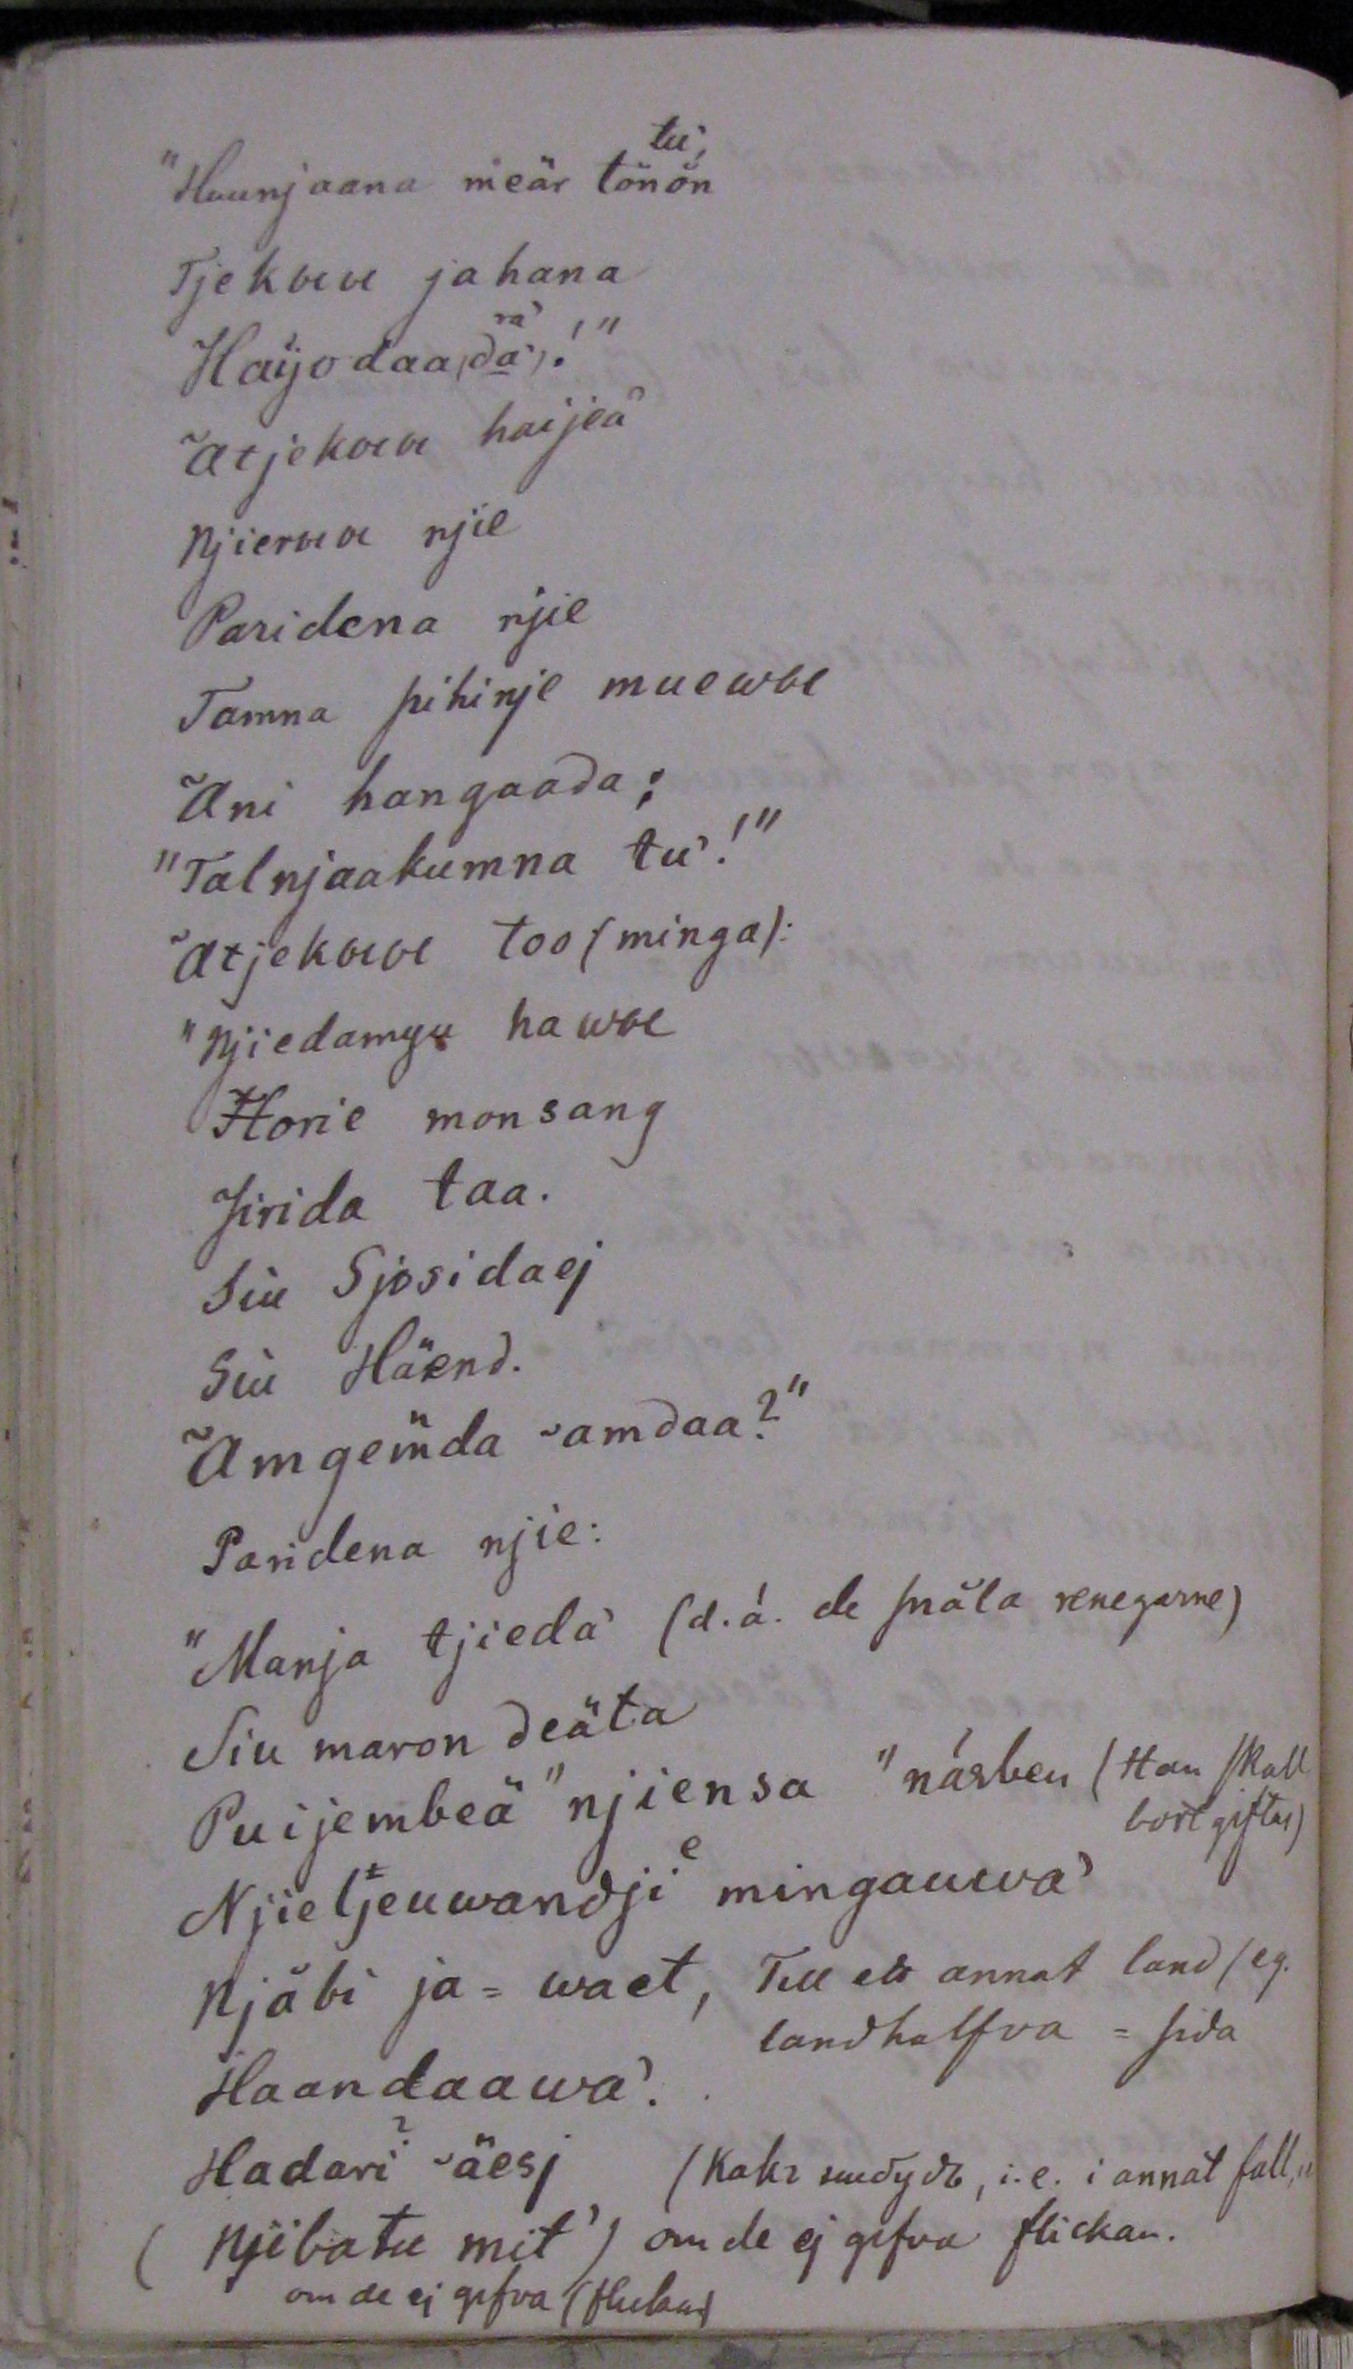 tu',
"Haunjaana meär tönön
Tjekoue jahana
rä'
Haijodaa,da',!"
Atjekoue haijea'
Njieroue njie
Paridena njie
Tamna pihinje muewoe
Ani hangaada;
"Talnjaakumna tu'!"
Atjekoue too (minga):
"Njiedamgu hawoe
Horie monsang
Jirida taa.
Siu Sjosidaej
Siu Häend.
Amgeinda amdaa?"
Paridena njie:
"Manja tjieda' (d.ä. de snåla renegarne)
Siu maron deäta
Puijembeä "njiensa "närben (Han skall
bortgiftas)
Njietjeuwandji e mingauwa'
Njäbi ja = waet, Till ett annat land (eg.
landhalfva = sida
Haandaawa'.
Hadari äesj (, i.e. i annat fall,
(Njibatu mit') om de ej gifva flickan.
om de ej gifva (flickan)